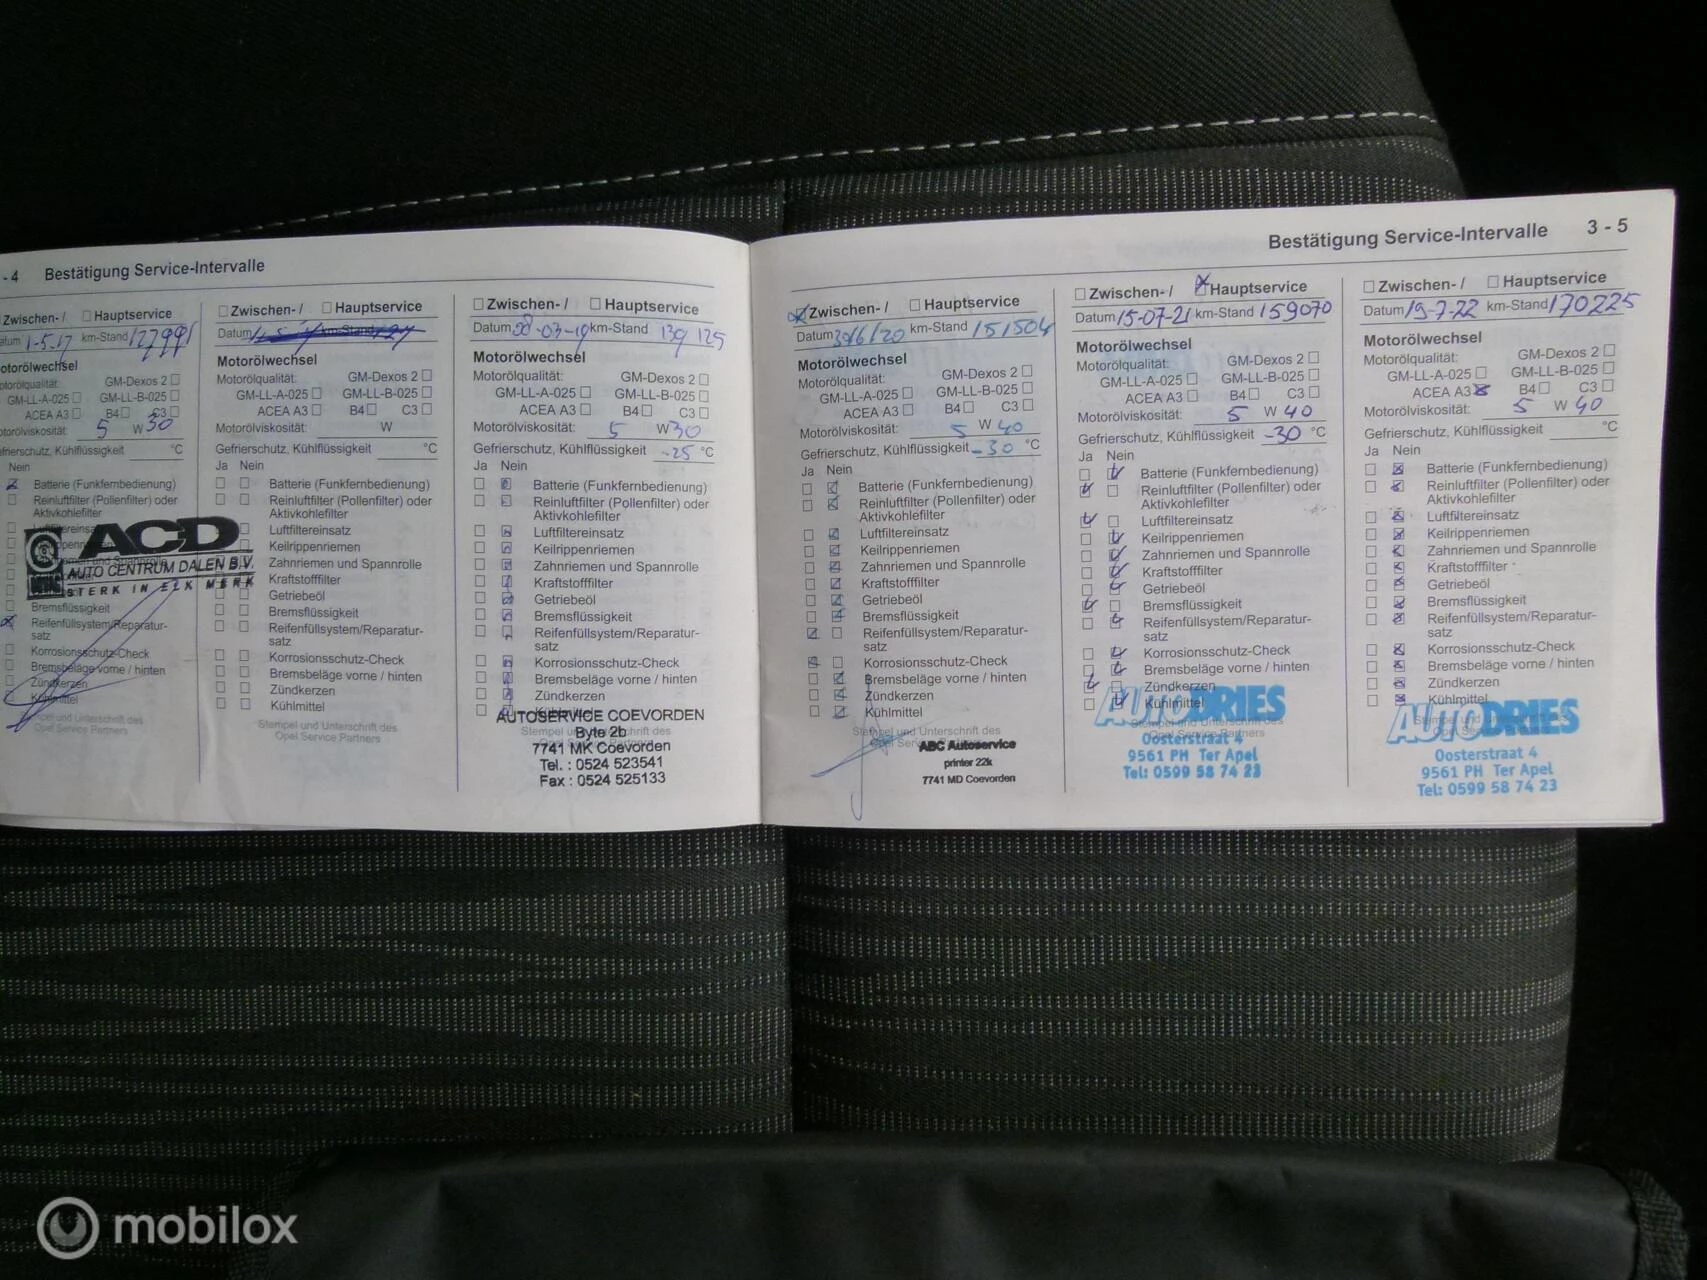 - 4 Bestätigung Service-Intervalle
Zwischen- / Hauptservice
1-5-17 km-Stand
Motorölwechsel
Motorölqualität: GM-Dexos 2
GM-LL-A-025 GM-LL-B-025
ACEA A3 B4 C3
Motorölviskosität: 5 W 30
Gefrierschutz, Kühlflüssigkeit °C
Nein
Batterie (Funkfernbedienung)
Reinluftfilter (Pollenfilter) oder
Aktivkohlefilter
ACD
AUTO CENTRUM DALEN B.V.
STERK IN ELK MERK
Bremsflüssigkeit
Reifenfüllsystem/Reparatur-
satz
Korrosionsschutz-Check
Bremsbeläge vorne / hinten
Zündkerzen
Kühlmittel
Stempel und Unterschrift des
Opel Service Partners
Zwischen- / Hauptservice
Datum km-Stand
Motorölwechsel
Motorölqualität: GM-Dexos 2
GM-LL-A-025 GM-LL-B-025
ACEA A3 B4 C3
Motorölviskosität: W
Gefrierschutz, Kühlflüssigkeit °C
Ja Nein
Batterie (Funkfernbedienung)
Reinluftfilter (Pollenfilter) oder
Aktivkohlefilter
Luftfiltereinsatz
Keilrippenriemen
Zahnriemen und Spannrolle
Kraftstofffilter
Getriebeöl
Bremsflüssigkeit
Reifenfüllsystem/Reparatur-
satz
Korrosionsschutz-Check
Bremsbeläge vorne / hinten
Zündkerzen
Kühlmittel
Stempel und Unterschrift des
Opel Service Partners
Zwischen- / Hauptservice
Datum 28-03-19 km-Stand 139 125
Motorölwechsel
Motorölqualität: GM-Dexos 2
GM-LL-A-025 GM-LL-B-025
ACEA A3 B4 C3
Motorölviskosität: 5 W 30
Gefrierschutz, Kühlflüssigkeit -25 °C
Ja Nein
Batterie (Funkfernbedienung)
Reinluftfilter (Pollenfilter) oder
Aktivkohlefilter
Luftfiltereinsatz
Keilrippenriemen
Zahnriemen und Spannrolle
Kraftstofffilter
Getriebeöl
Bremsflüssigkeit
Reifenfüllsystem/Reparatur-
satz
Korrosionsschutz-Check
Bremsbeläge vorne / hinten
Zündkerzen
Kühlmittel
AUTOSERVICE COEVORDEN
Byte 2b
7741 MK Coevorden
Tel. : 0524 523541
Fax : 0524 525133
Bestätigung Service-Intervalle 3 - 5
Zwischen- / Hauptservice
Datum 30/6/20 km-Stand 151504
Motorölwechsel
Motorölqualität: GM-Dexos 2
GM-LL-A-025 GM-LL-B-025
ACEA A3 B4 C3
Motorölviskosität: 5 W 40
Gefrierschutz, Kühlflüssigkeit -30 °C
Ja Nein
Batterie (Funkfernbedienung)
Reinluftfilter (Pollenfilter) oder
Aktivkohlefilter
Luftfiltereinsatz
Keilrippenriemen
Zahnriemen und Spannrolle
Kraftstofffilter
Getriebeöl
Bremsflüssigkeit
Reifenfüllsystem/Reparatur-
satz
Korrosionsschutz-Check
Bremsbeläge vorne / hinten
Zündkerzen
Kühlmittel
Stempel und Unterschrift des
ABC Autoservice
printer 22k
7741 MD Coevorden
Zwischen- / Hauptservice
Datum 15-07-21 km-Stand 159070
Motorölwechsel
Motorölqualität: GM-Dexos 2
GM-LL-A-025 GM-LL-B-025
ACEA A3 B4 C3
Motorölviskosität: 5 W 40
Gefrierschutz, Kühlflüssigkeit -30 °C
Ja Nein
Batterie (Funkfernbedienung)
Reinluftfilter (Pollenfilter) oder
Aktivkohlefilter
Luftfiltereinsatz
Keilrippenriemen
Zahnriemen und Spannrolle
Kraftstofffilter
Getriebeöl
Bremsflüssigkeit
Reifenfüllsystem/Reparatur-
satz
Korrosionsschutz-Check
Bremsbeläge vorne / hinten
Zündkerzen
Kühlmittel
AUTODRIES
Oosterstraat 4
9561 PH Ter Apel
Tel: 0599 58 74 23
Zwischen- / Hauptservice
Datum 19-7-22 km-Stand 170225
Motorölwechsel
Motorölqualität: GM-Dexos 2
GM-LL-A-025 GM-LL-B-025
ACEA A3 B4 C3
Motorölviskosität: 5 W 40
Gefrierschutz, Kühlflüssigkeit °C
Ja Nein
Batterie (Funkfernbedienung)
Reinluftfilter (Pollenfilter) oder
Aktivkohlefilter
Luftfiltereinsatz
Keilrippenriemen
Zahnriemen und Spannrolle
Kraftstofffilter
Getriebeöl
Bremsflüssigkeit
Reifenfüllsystem/Reparatur-
satz
Korrosionsschutz-Check
Bremsbeläge vorne / hinten
Zündkerzen
Kühlmittel
AUTODRIES
Oosterstraat 4
9561 PH Ter Apel
Tel: 0599 58 74 23
mobilox